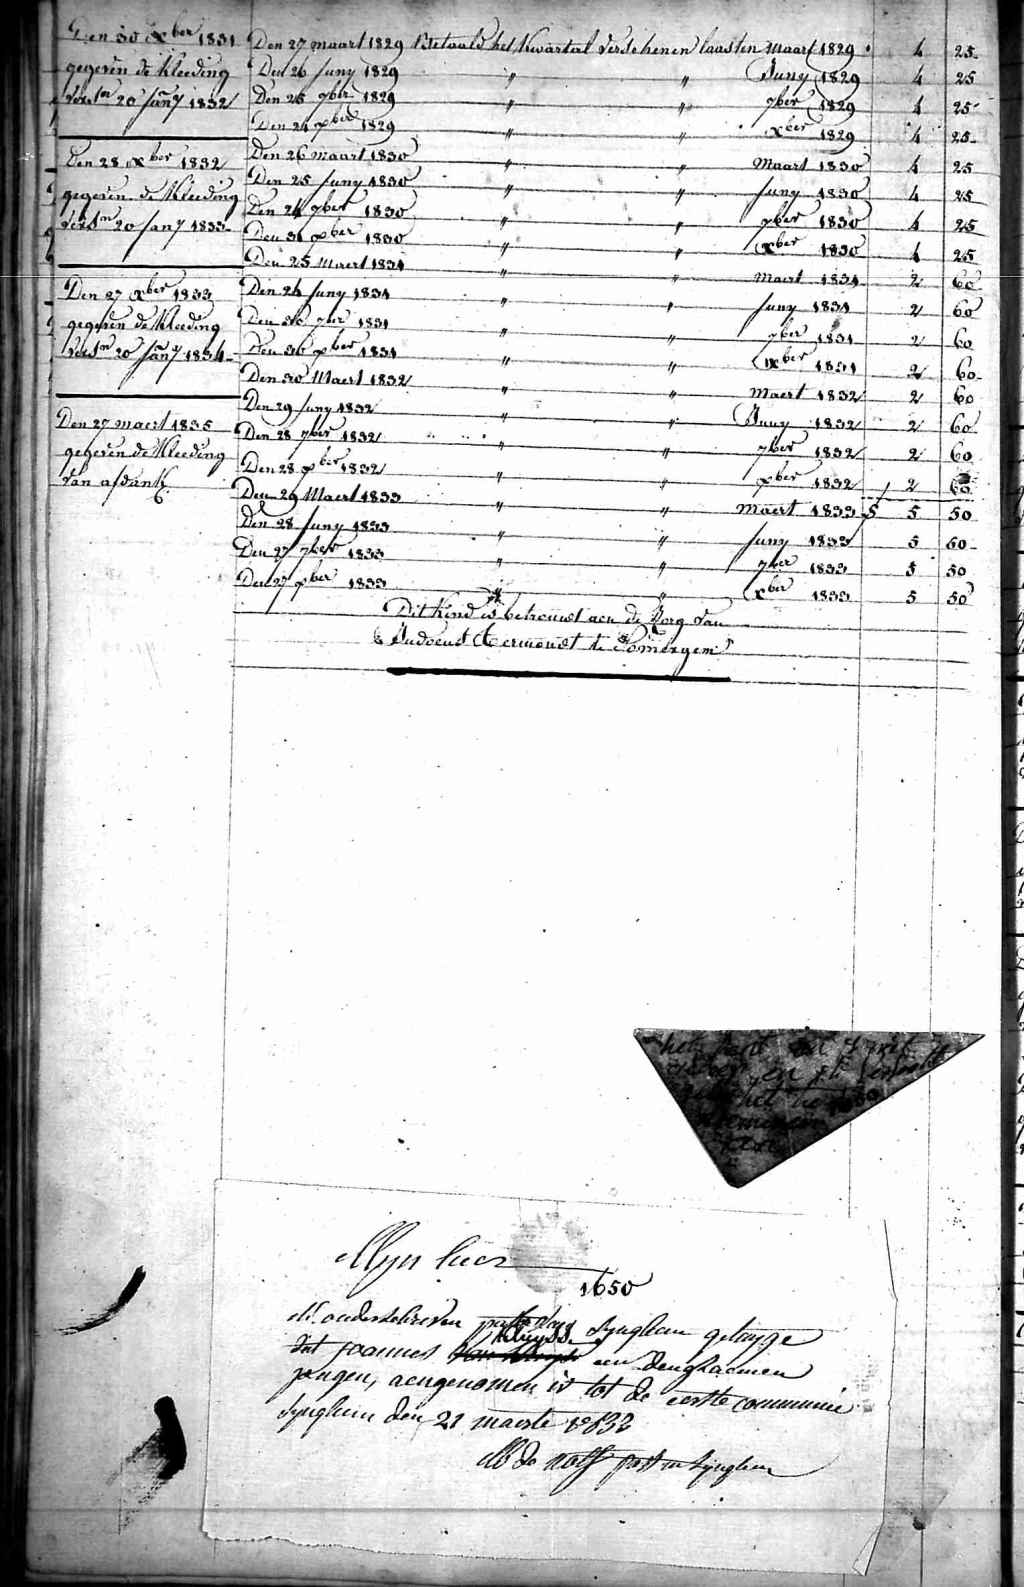 Den 30 Xber 1831
gegeven de Kleeding
verst 20 Jany 1832
Den 28 Xber 1832
gegeven de Kleeding
verst 20 Jany 1833
Den 27 xber 1833
gegeven de Kleeding
verst 20 Jany 1834
Den 27 maert 1835
gegeven de Kleeding
van afdank
Den 27 maart 1829 Betaald het Kwartal verschenen laasten Maart 1829 4 25
Den 26 Juny 1829 " " Juny 1829 4 25
Den 25 7ber 1829 " " 7ber 1829 4 25
Den 24 xber 1829 " " xber 1829 4 25
Den 26 maart 1830 " " Maart 1830 4 25
Den 25 Juny 1830 " " Juny 1830 4 25
Den 24 7ber 1830 " " 7ber 1830 4 25
Den 31 xber 1830 " " xber 1830 4 25
Den 25 Maert 1831 " " Maert 1831 2 60
Den 24 Juny 1831 " " Juny 1831 2 60
Den 30 7ber 1831 " " 7ber 1831 2 60
Den 30 xber 1831 " " xber 1831 2 60
Den 30 Maert 1832 " " Maert 1832 2 60
Den 29 Juny 1832 " " Juny 1832 2 60
Den 28 7ber 1832 " " 7ber 1832 2 60
Den 28 xber 1832 " " xber 1832 2 60
Den 29 Maert 1833 " " Maert 1833 5 50
Den 28 Juny 1833 " " Juny 1833 5 50
Den 27 7ber 1833 " " 7ber 1833 5 50
Den 27 xber 1833 " " xber 1833 5 50
Dit Kind is betrouwt aen de Zorg van
Judocus Termondt te Somergem
het
en
het
Myn heer
1650
d'onderschreven pastor van Synghem getuygt
dat joannes Kluyss een deughdaemen
jongen, aengenomen is tot de eerste communie
Synghem den 21 maerte 1833
past in Synghem